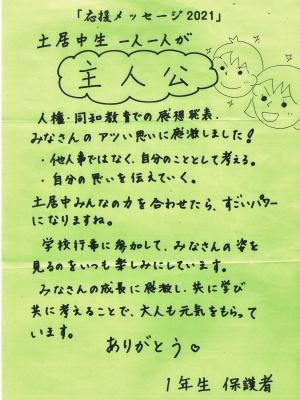 「応援メッセージ2021」
土居中生 一人一人が
主人公
人権・同和教育での感想発表．
みなさんの アツい思いに感激しました！
・他人事ではなく、自分のこととして考える。
・自分の思いを伝えていく。
土居中みんなの力を合わせたら、すごいパワー
になりますね。
学校行事に参加して、みなさんの姿を
見るのをいつも楽しみにしています。
みなさんの成長に感激し、共に学び
共に考えることで、大人も元気をもらって
います。
ありがとう
1年生 保護者